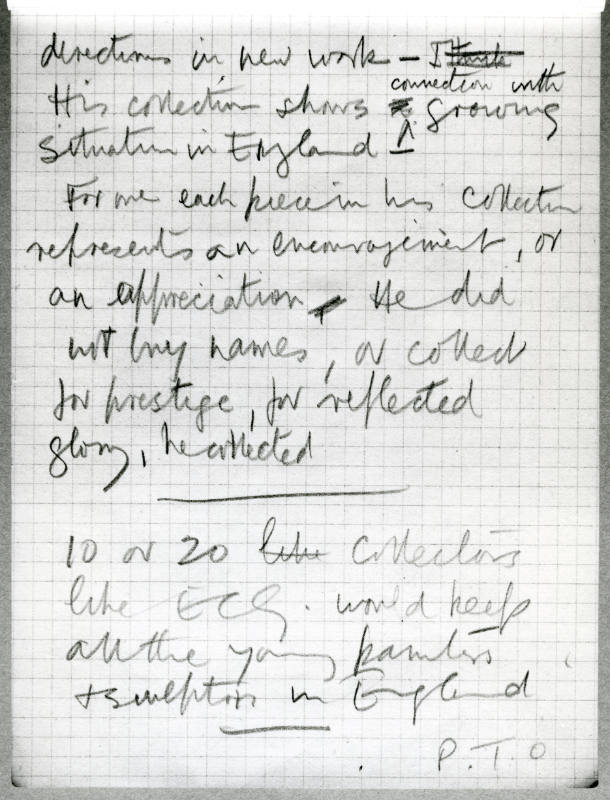 directions in new work – I think
connection with
His collection shows growing
situation in England
For me each piece in his collection
represents an encouragement, or
an appreciation, He did
not buy names, or collect
for prestige, for reflected
glory, he collected
10 or 20 like collectors
like ECG. would keep
all the young painters
+ sculptors in England
P.T.O